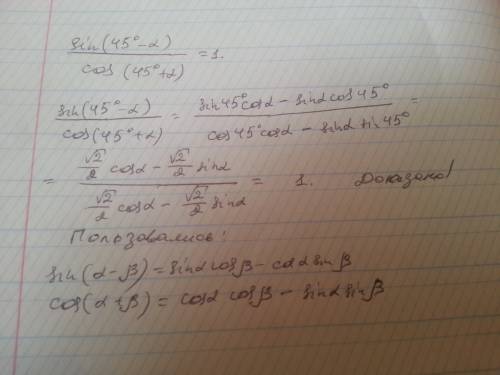 sin(45°-α)/cos(45°+α) = 1.
sin(45°-α)/cos(45°+α) = (sin45°cosα - sinα cos45°)/(cos45°cosα - sinα sin45°) =
= (√2/2 cosα - √2/2 sinα)/(√2/2 cosα - √2/2 sinα) = 1. Доказано!
Пользовались:
sin(α-β) = sinα cosβ - cosα sinβ
cos(α+β) = cosα cosβ - sinα sinβ